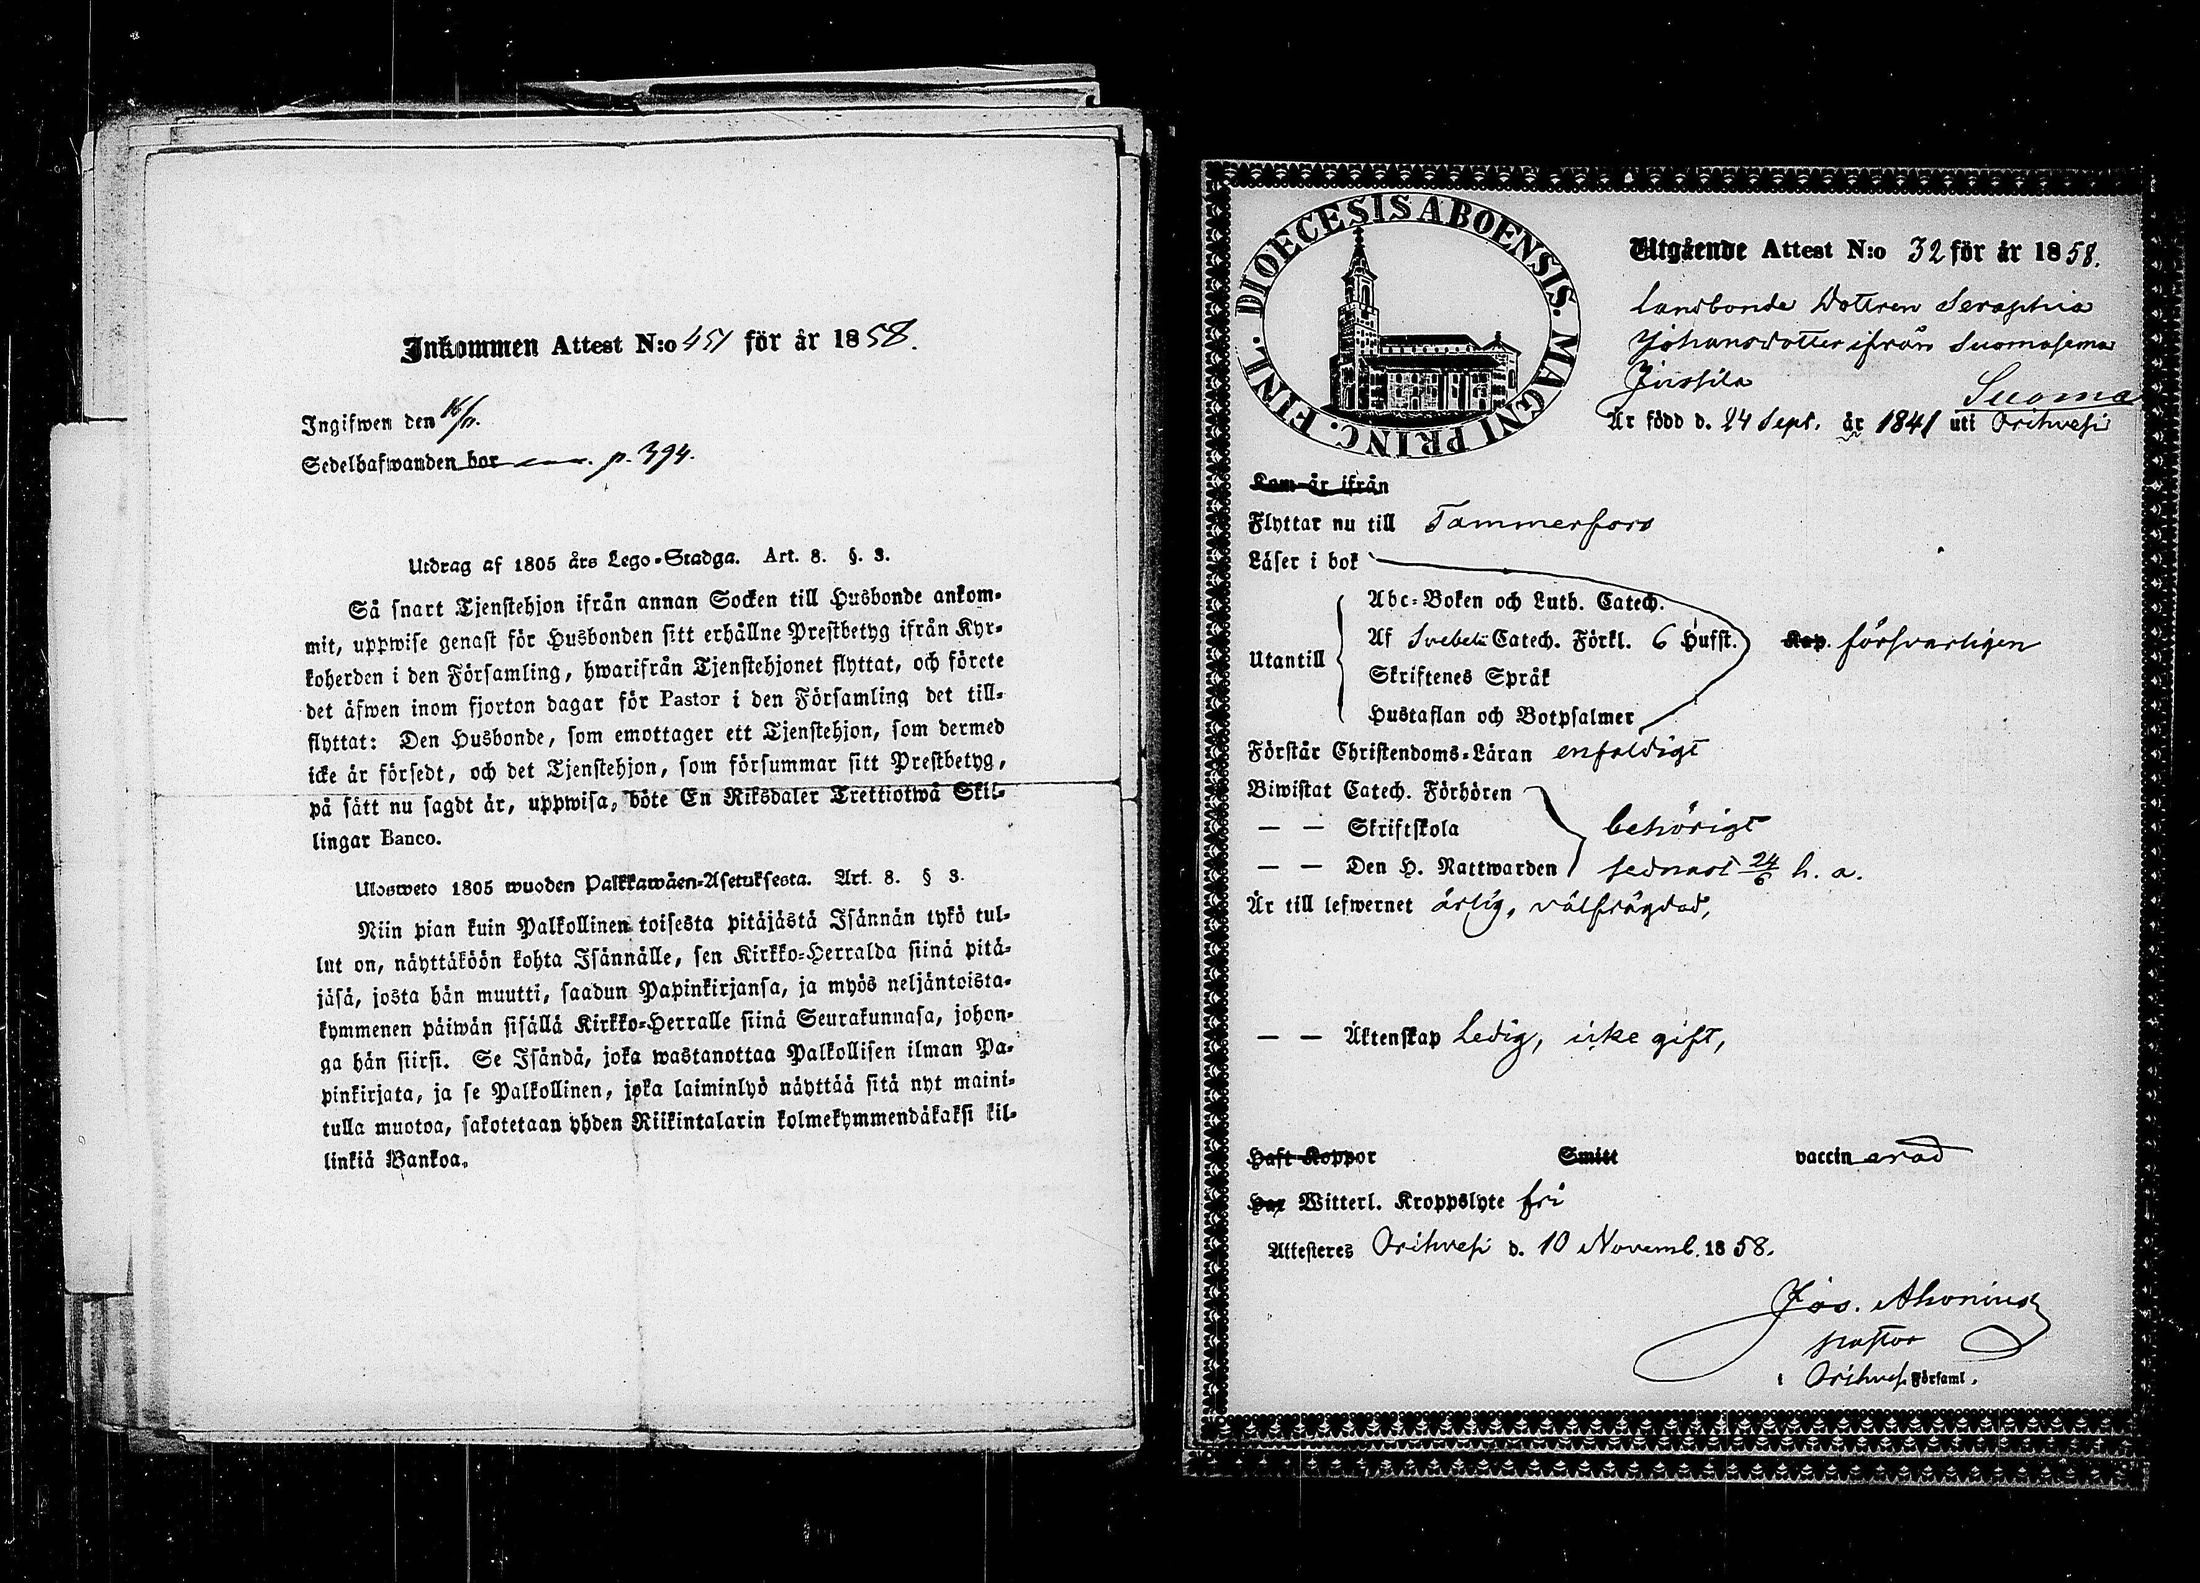 Inkommen Attest N:o 451 för år 1858.
Ingifwen den 16/11.
Sedelhafwanden bor p. 394.
Utdrag af 1805 års Lego-Stadga. Art. 8. §. 3.
Så snart Tjenstehjon ifrån annan Socken till Husbonde ankom-
mit, uppwise genast för Husbonden sitt erhållne Prestbetyg ifrån Kyr-
koherden i den Församling, hwarifrån Tjenstehjonet flyttat, och förete
det äfwen inom fjorton dagar för Pastor i den Församling det till-
flyttat: Den Husbonde, som emottager ett Tjenstehjon, som dermed
icke är försedt, och det Tjenstehjon, som försummar sitt Prestbetyg,
på sätt nu sagdt är, uppwisa, böte En Riksdaler Trettiotwå Skil-
lingar Banco.
Ulosweto 1805 wuoden Palkkawäen-Asetuksesta. Art. 8. § 3.
Niin pian kuin Palkollinen toisesta pitäjästä Isännän tykö tul-
lut on, näyttäköön kohta Isännälle, sen Kirkko-Herralda siinä pitä-
jäsä, josta hän muutti, saadun Papinkirjansa, ja myös neljäntoista-
kymmenen päiwän sisällä Kirkko-Herralle siinä Seurakunnasa, johon-
ga hän siirsi. Se Isändä, joka wastanottaa Palkollisen ilman Pa-
pinkirjata, ja se Palkollinen, joka laiminlyö näyttää sitä nyt maini-
tulla muotoa, sakotetaan yhden Riikintalarin kolmekymmendäkaksi kil-
linkiä Bankoa.
DIOECESIS ABOENSIS. MAGNI PRINC. FINL.
Utgående Attest N:o 32 för år 1858.
Landbonde Dottren Seraphia
Johansdotter ifrån Suomasema
Jussila
Suoma
Är född d. 24 Sept. år 1841 uti Orihvesi
Kom år ifrån
Flyttar nu till Tammerfors
Läser i bok
Utantill
Abc-Boken och Luth. Catech.
Af Svebeli Catech. Förkl. 6 Hufst. Kap. försvarligen
Skriftenes Språk
Hustaflan och Botpsalmer
Förstår Christendoms-Läran enfaldigt
Biwistat Catech. Förhören
— — Skriftskola behörigt
— — Den H. Nattwarden sednast 24/6 h. a.
Är till lefwernet ärlig, välfrägdad,
— — Äktenskap Ledig, icke gift,
Haft Koppor Smitt vaccinerad
Har Witterl. Kroppslyte fri
Attesteres Orihvesi d. 10 Novemb. 1858.
Jos. Ahonius
pastor
i Orihvesi Församl.